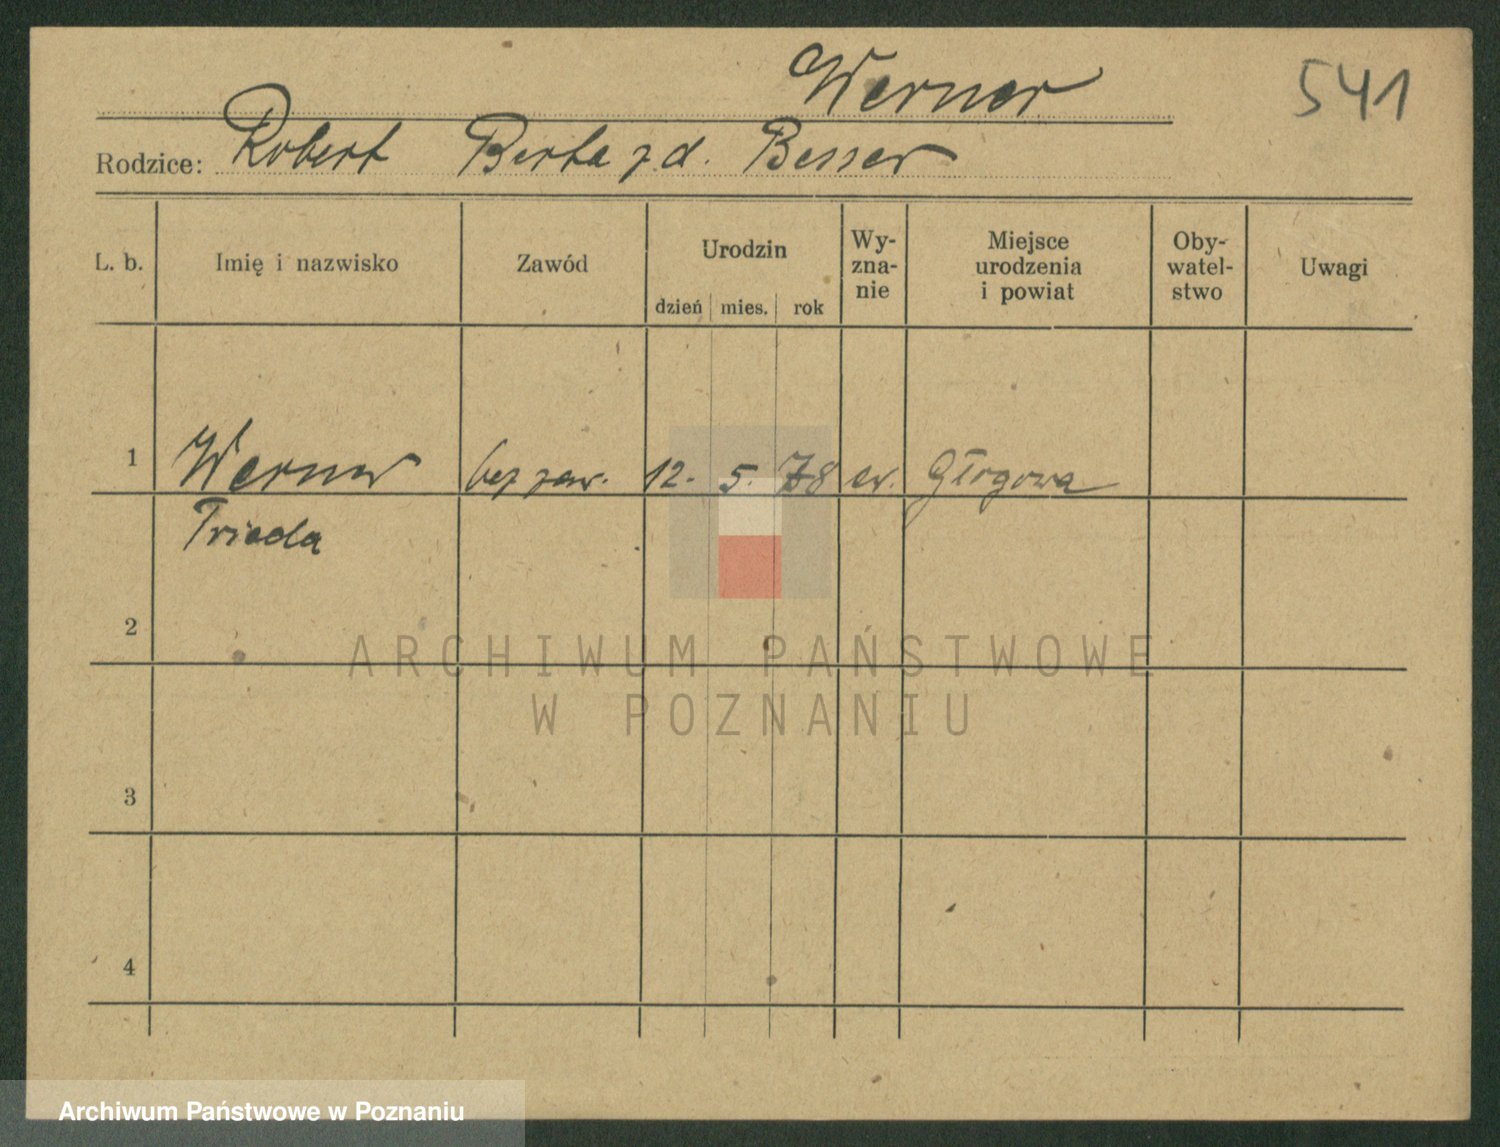 Werner 541
Rodzice: Robert Berta z d. Besser
L. b. Imię i nazwisko Zawód Urodzin dzień mies. rok Wy-zna-nie Miejsce urodzenia i powiat Oby-watel-stwo Uwagi
1 Werner bez zaw. 12. 5. 78 ew. Głogowa
Frieda
2
ARCHIWUM PAŃSTWOWE
W POZNANIU
3
4
Archiwum Państwowe w Poznaniu